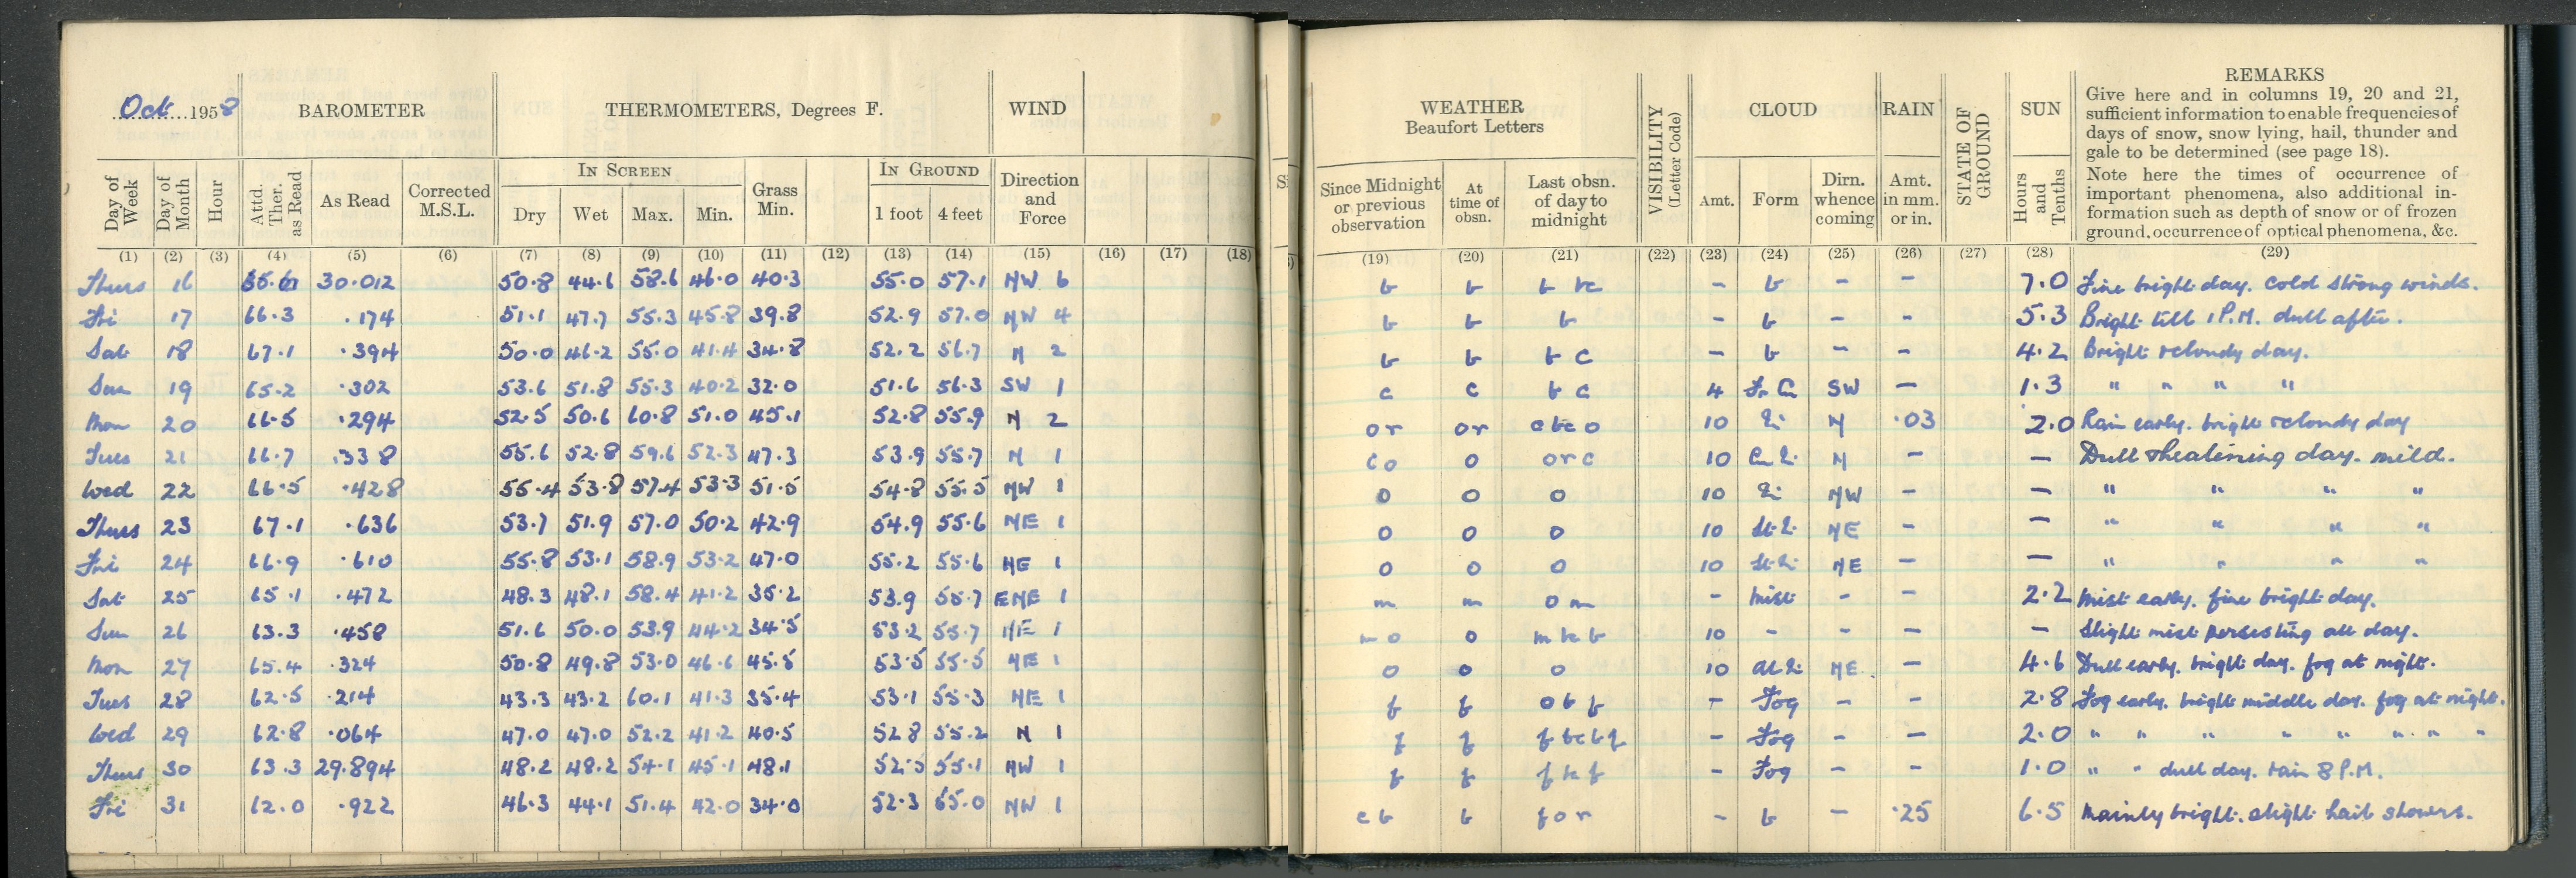 Oct 1958
BAROMETER
THERMOMETERS, Degrees F.
WIND
Day of Week
Day of Month
Hour
Attd. Ther. as Read
As Read
Corrected M.S.L.
IN SCREEN
Dry
Wet
Max.
Min.
Grass Min.
IN GROUND
1 foot
4 feet
Direction and Force
(1) (2) (3) (4) (5) (6) (7) (8) (9) (10) (11) (12) (13) (14) (15) (16) (17) (18)
WEATHER
Beaufort Letters
Since Midnight or previous observation
At time of obsn.
Last obsn. of day to midnight
VISIBILITY
(Letter Code)
CLOUD
Amt.
Form
Dirn. whence coming
RAIN
Amt. in mm. or in.
STATE OF GROUND
SUN
Hours and Tenths
REMARKS
Give here and in columns 19, 20 and 21,
sufficient information to enable frequencies of
days of snow, snow lying, hail, thunder and
gale to be determined (see page 18).
Note here the times of occurrence of
important phenomena, also additional in-
formation such as depth of snow or of frozen
ground, occurrence of optical phenomena, &c.
(19) (20) (21) (22) (23) (24) (25) (26) (27) (28) (29)
Thurs 16 30.012 50.8 44.6 58.6 46.0 40.3 55.0 57.1 NW 6 b b b bc - b - - 7.0 Fine bright day. Cold strong winds.
Fri 17 66.3 .174 51.1 47.7 55.3 45.8 39.8 52.9 57.0 NW 4 b b b - b - - 5.3 Bright till 1 P.M. dull after.
Sat 18 67.1 .394 50.0 46.2 55.0 41.4 34.8 52.2 56.7 N 2 b b b c - b - - 4.2 Bright & cloudy day.
Sun 19 65.2 .302 53.6 51.8 55.3 40.2 32.0 51.6 56.3 SW 1 c c b c 4 Fr Cu SW - 1.3 " " " "
Mon 20 66.5 .294 52.5 50.6 60.8 51.0 45.1 52.8 55.9 N 2 or or c bc o 10 N .03 2.0 Rain early. bright & cloudy day
Tues 21 66.7 .338 55.6 52.8 59.6 52.3 47.3 53.9 55.7 N 1 c o o o r c 10 N - - Dull day. mild.
Wed 22 66.5 .428 55.4 53.8 57.4 53.3 51.5 54.8 55.5 NW 1 o o o 10 NW - - " " " "
Thurs 23 67.1 .636 53.7 51.9 57.0 50.2 42.9 54.9 55.6 NE 1 o o o 10 NE - - " " " "
Fri 24 66.9 .610 55.8 53.1 58.9 53.2 47.0 55.2 55.6 NE 1 o o o 10 NE - - " " " "
Sat 25 65.1 .472 48.3 48.1 58.4 41.2 35.2 53.9 55.7 ENE 1 m m o m - Mist - - 2.2 Mist early. fine bright day.
Sun 26 63.3 .458 51.6 50.0 53.9 44.2 34.5 53.2 55.7 NE 1 m o o 10 - - - - Slight mist persisting all day.
Mon 27 65.4 .324 50.8 49.8 53.0 46.6 45.5 53.5 55.5 NE 1 o o o 10 NE - 4.6 Dull early. bright day. fog at night.
Tues 28 62.5 .214 43.3 43.2 60.1 41.3 35.4 53.1 55.3 NE 1 f f o b f - Fog - - 2.8 Fog early. bright middle day. fog at night.
Wed 29 62.8 .064 47.0 47.0 52.2 41.2 40.5 52.8 55.2 N 1 f f - Fog - - 2.0 " " " " " " " "
Thurs 30 63.3 29.894 48.2 48.2 54.1 45.1 48.1 52.5 55.1 NW 1 f f - Fog - - 1.0 " " dull day. rain 8 P.M.
Fri 31 62.0 .922 46.3 44.1 51.4 42.0 34.0 52.3 55.0 NW 1 c b b f o r - b - .25 6.5 Mainly bright. slight hail showers.